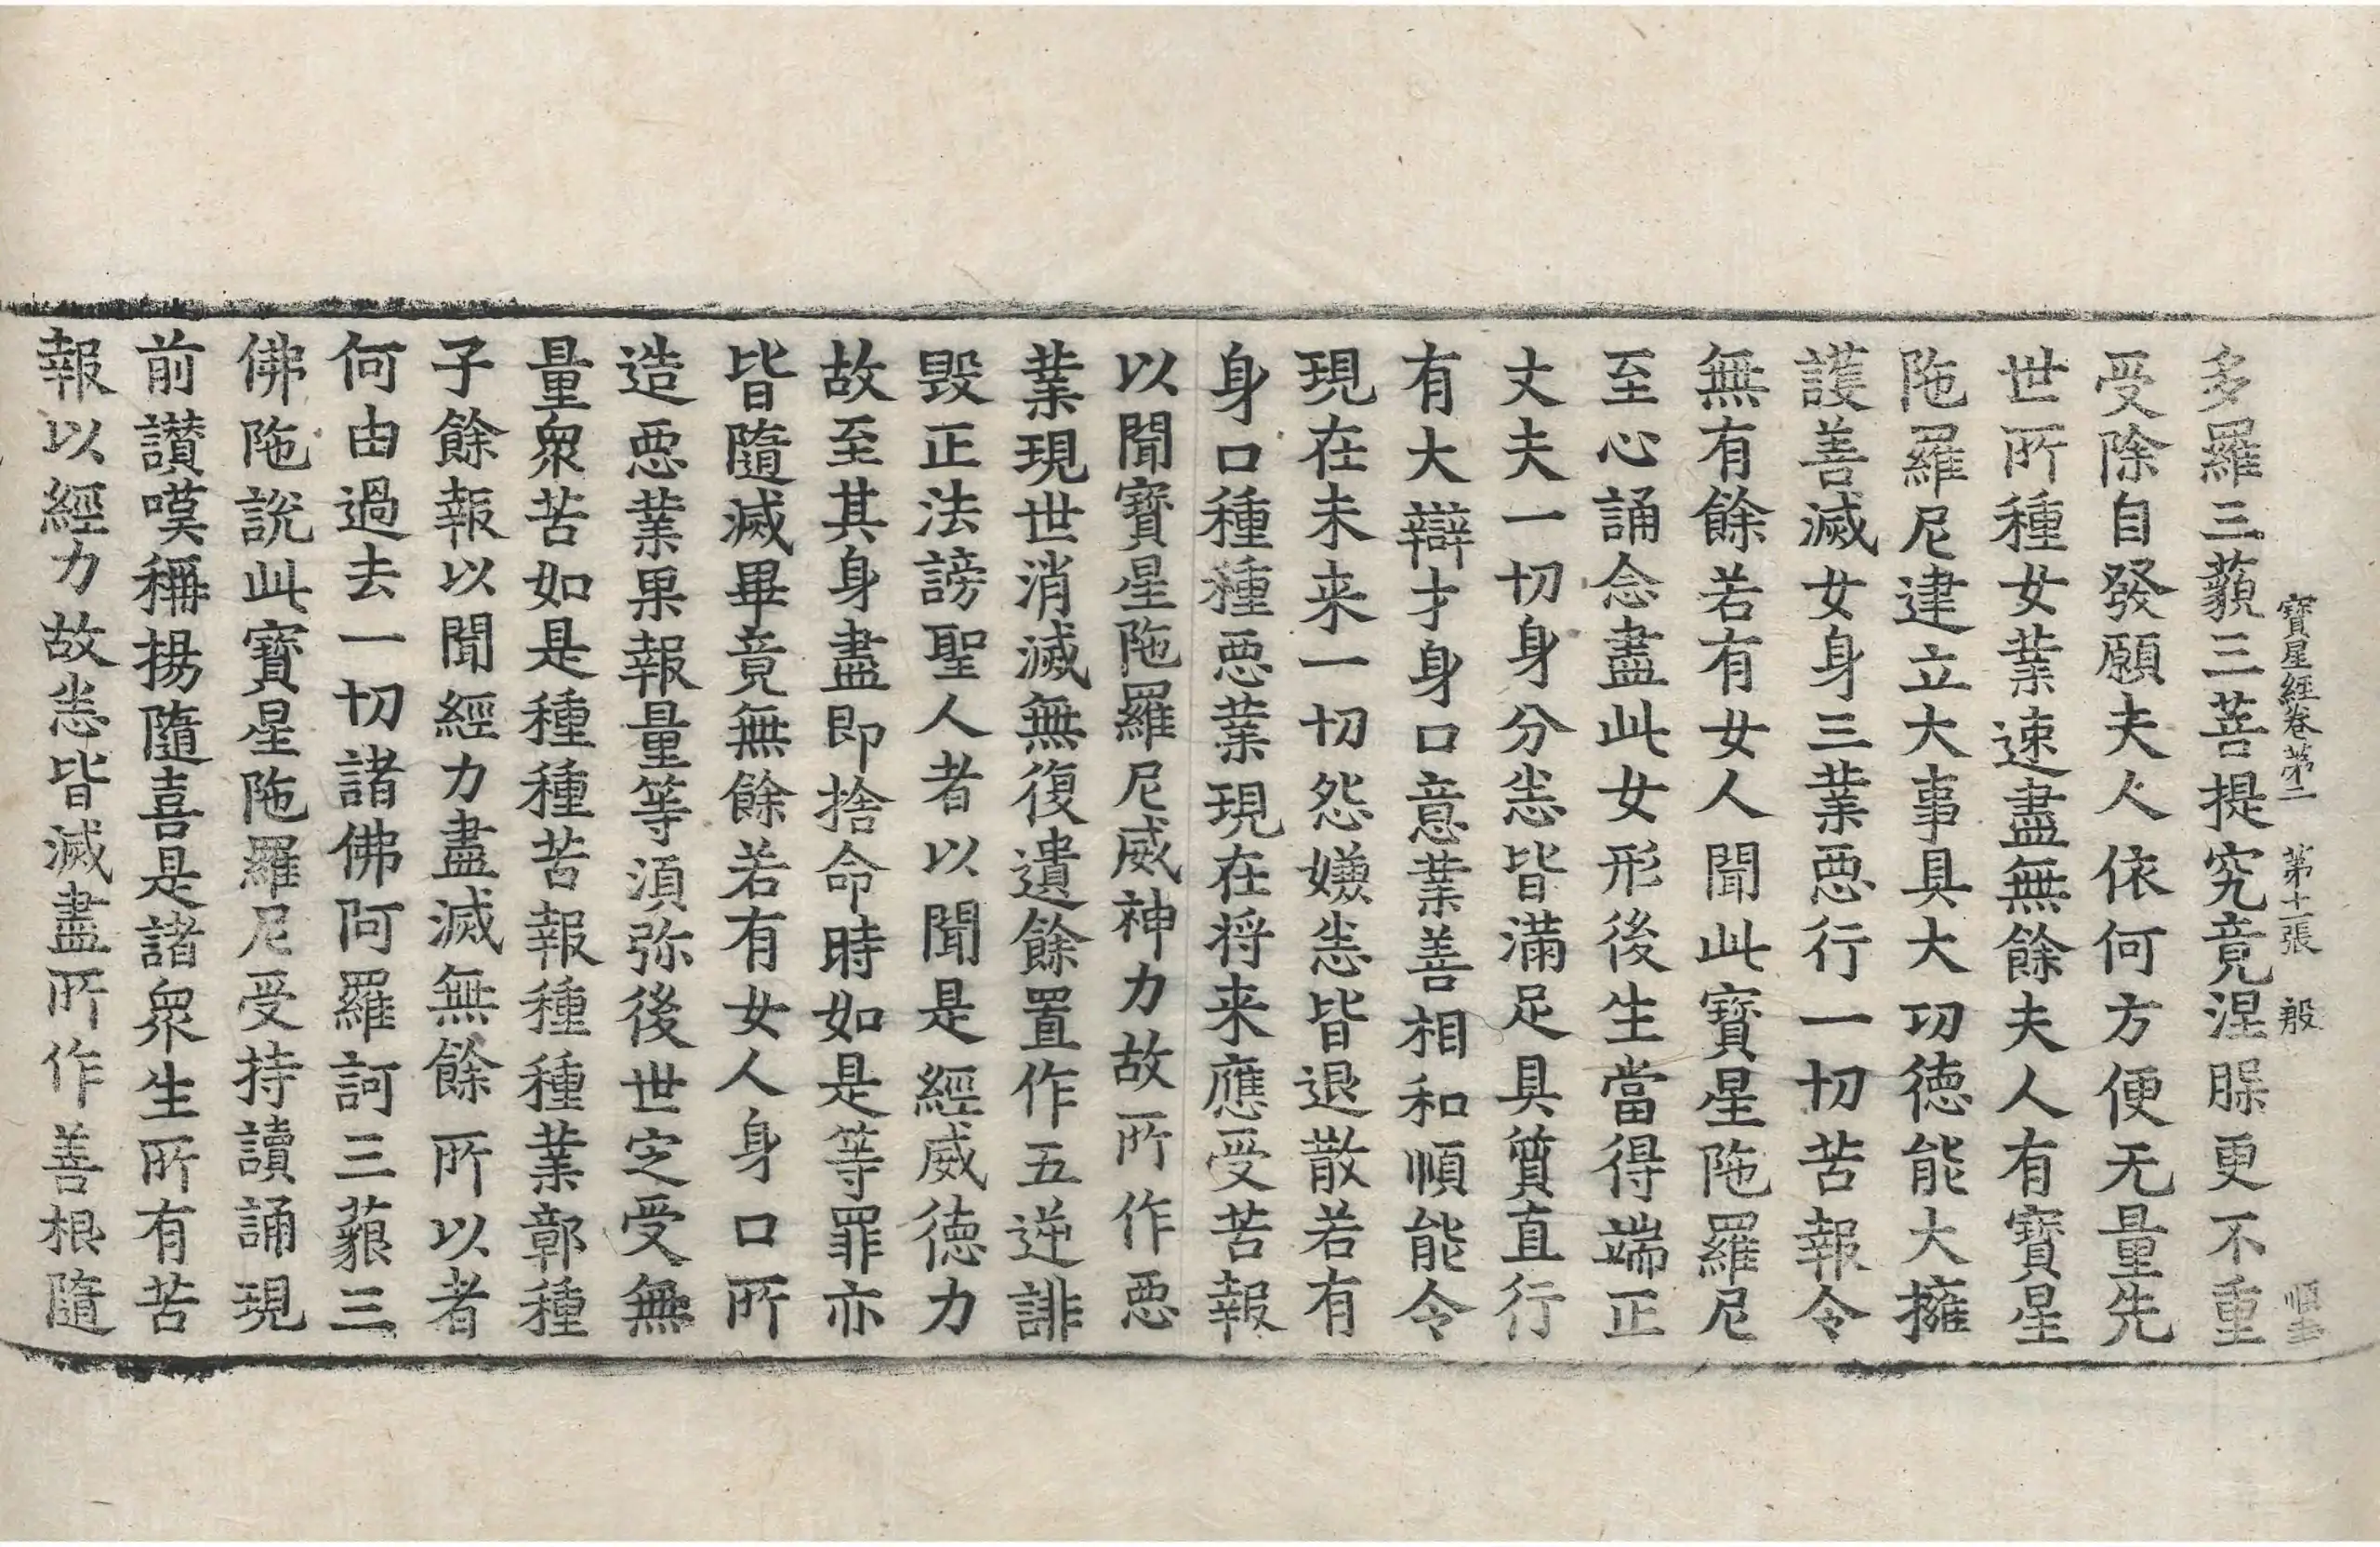 寶星經卷第二 第十一張 般
多羅三藐三菩提究竟涅槃更不重
受除自發願夫人依何方便无量先
世所種女業速盡無餘夫人有寶星
陁羅尼建立大事具大功德能大擁
護善滅女身三業惡行一切苦報令
無有餘若有女人聞此寶星陁羅尼
至心誦念盡此女形後生當得端正
丈夫一切身分悉皆滿足具質直行
有大辯才身口意業善相和順能令
現在未来一切怨嫌悉皆退散若有
身口種種惡業現在将来應受苦報
以聞寶星陁羅尼威神力故所作惡
業現世消滅無復遺餘置作五逆誹
毀正法謗聖人者以聞是經威德力
故至其身盡即捨命時如是等罪亦
皆隨滅畢竟無餘若有女人身口所
造惡業果報量等湏弥後世定受無
量衆苦如是種種苦報種種業鄣種
子餘報以聞經力盡滅無餘所以者
何由過去一切諸佛阿羅訶三藐三
佛陁說此寶星陁羅尼受持讀誦現
前讃嘆稱揚隨喜是諸衆生所有苦
報以經力故悉皆滅盡所作善根隨